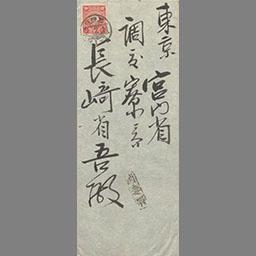 東京
宮内省
調度寮ニテ
長崎省吾殿